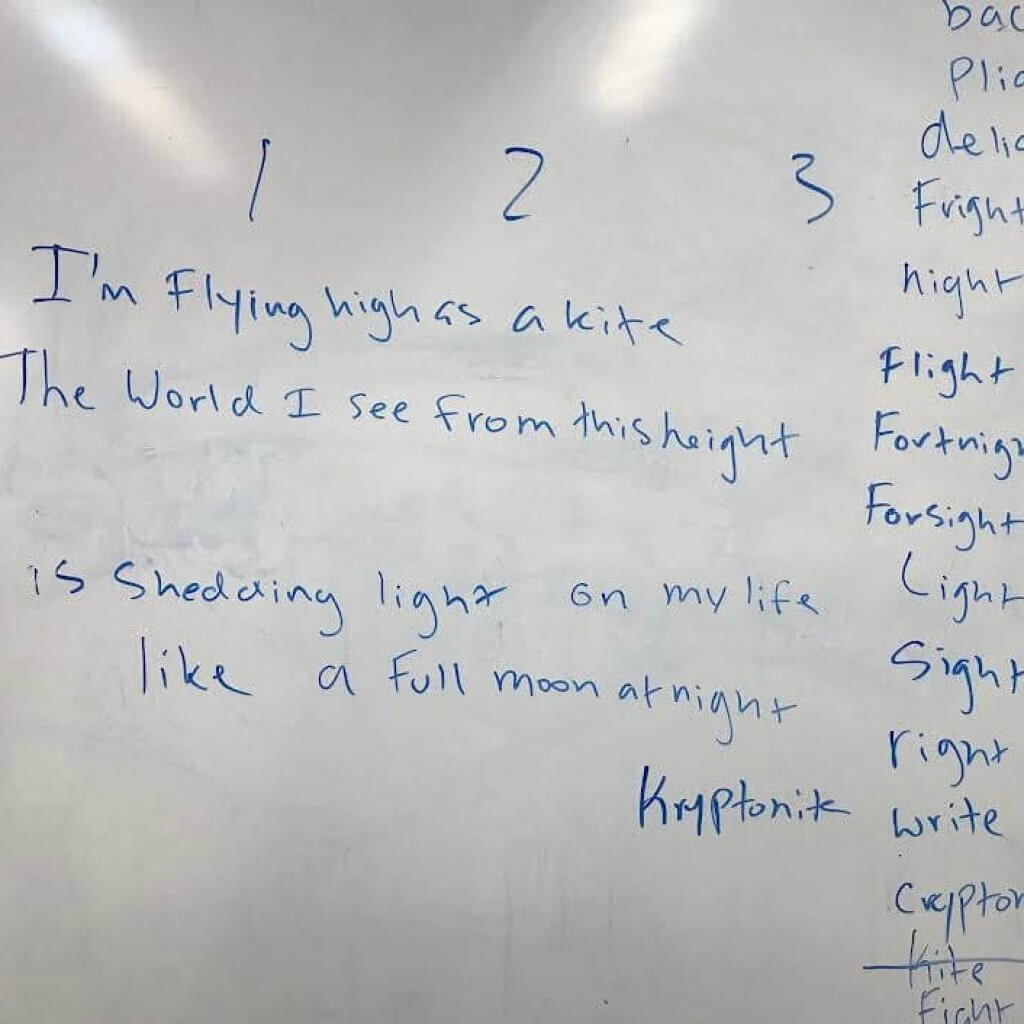 1 2 3
I'm Flying high as a kite
The World I see from this height
is Shedding light on my life
like a full moon at night
Kryptonite
bac
Plig
delig
Fright
night
Flight
Fortnigh
Forsight
Light
Sight
right
write
Crypton
Kite
Fight